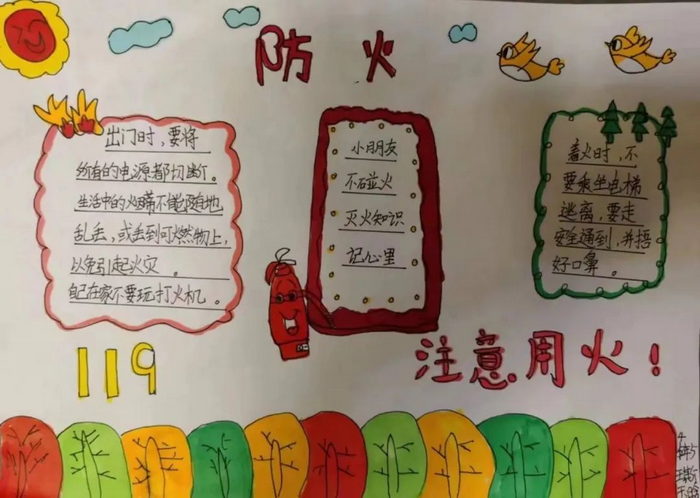 防火
出门时，要将
所有的电源都切断。
生活中的火 不能随地
乱丢，或丢到可燃物上，
以免引起火灾。
自己在家不要玩打火机。
小朋友
不碰火
灭火知识
记心里
着火时，不
要乘坐电梯
逃离，要走
安全通到，并捂
好口鼻。
119
注意用火！